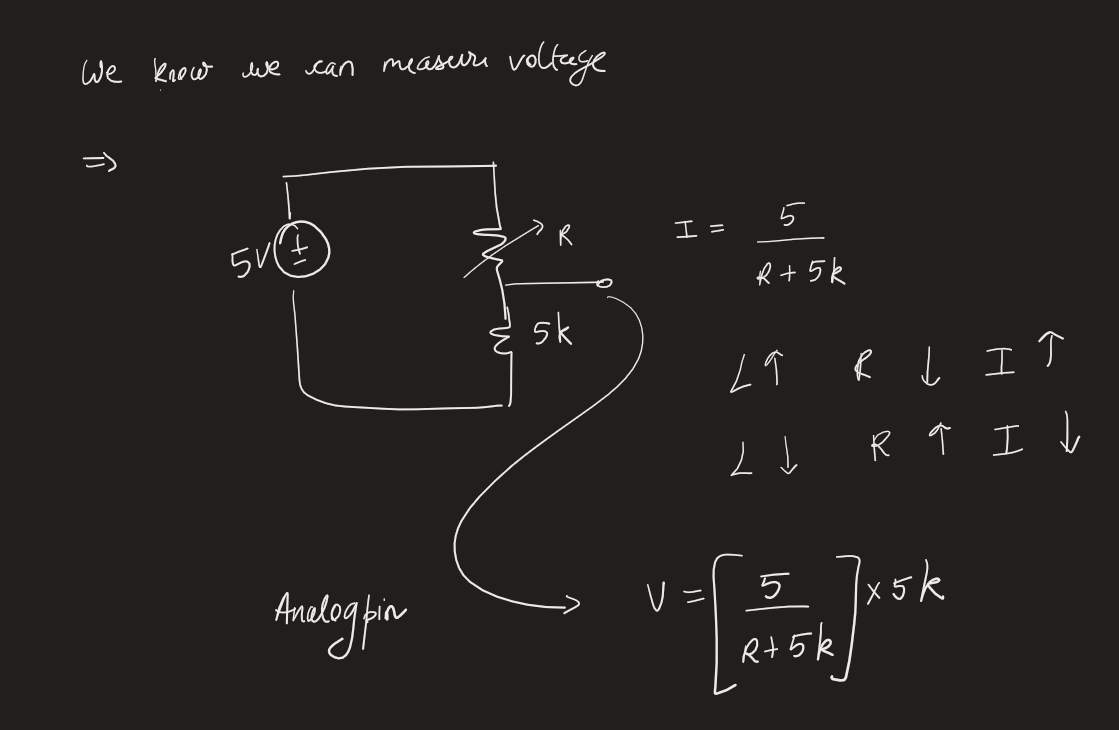 We know we can measure voltage
⇒
5V
R
5k
I = 5 / R + 5k
L ↑ R ↓ I ↑
L ↓ R ↑ I ↓
Analog pin
V = [5 / R + 5k] × 5k